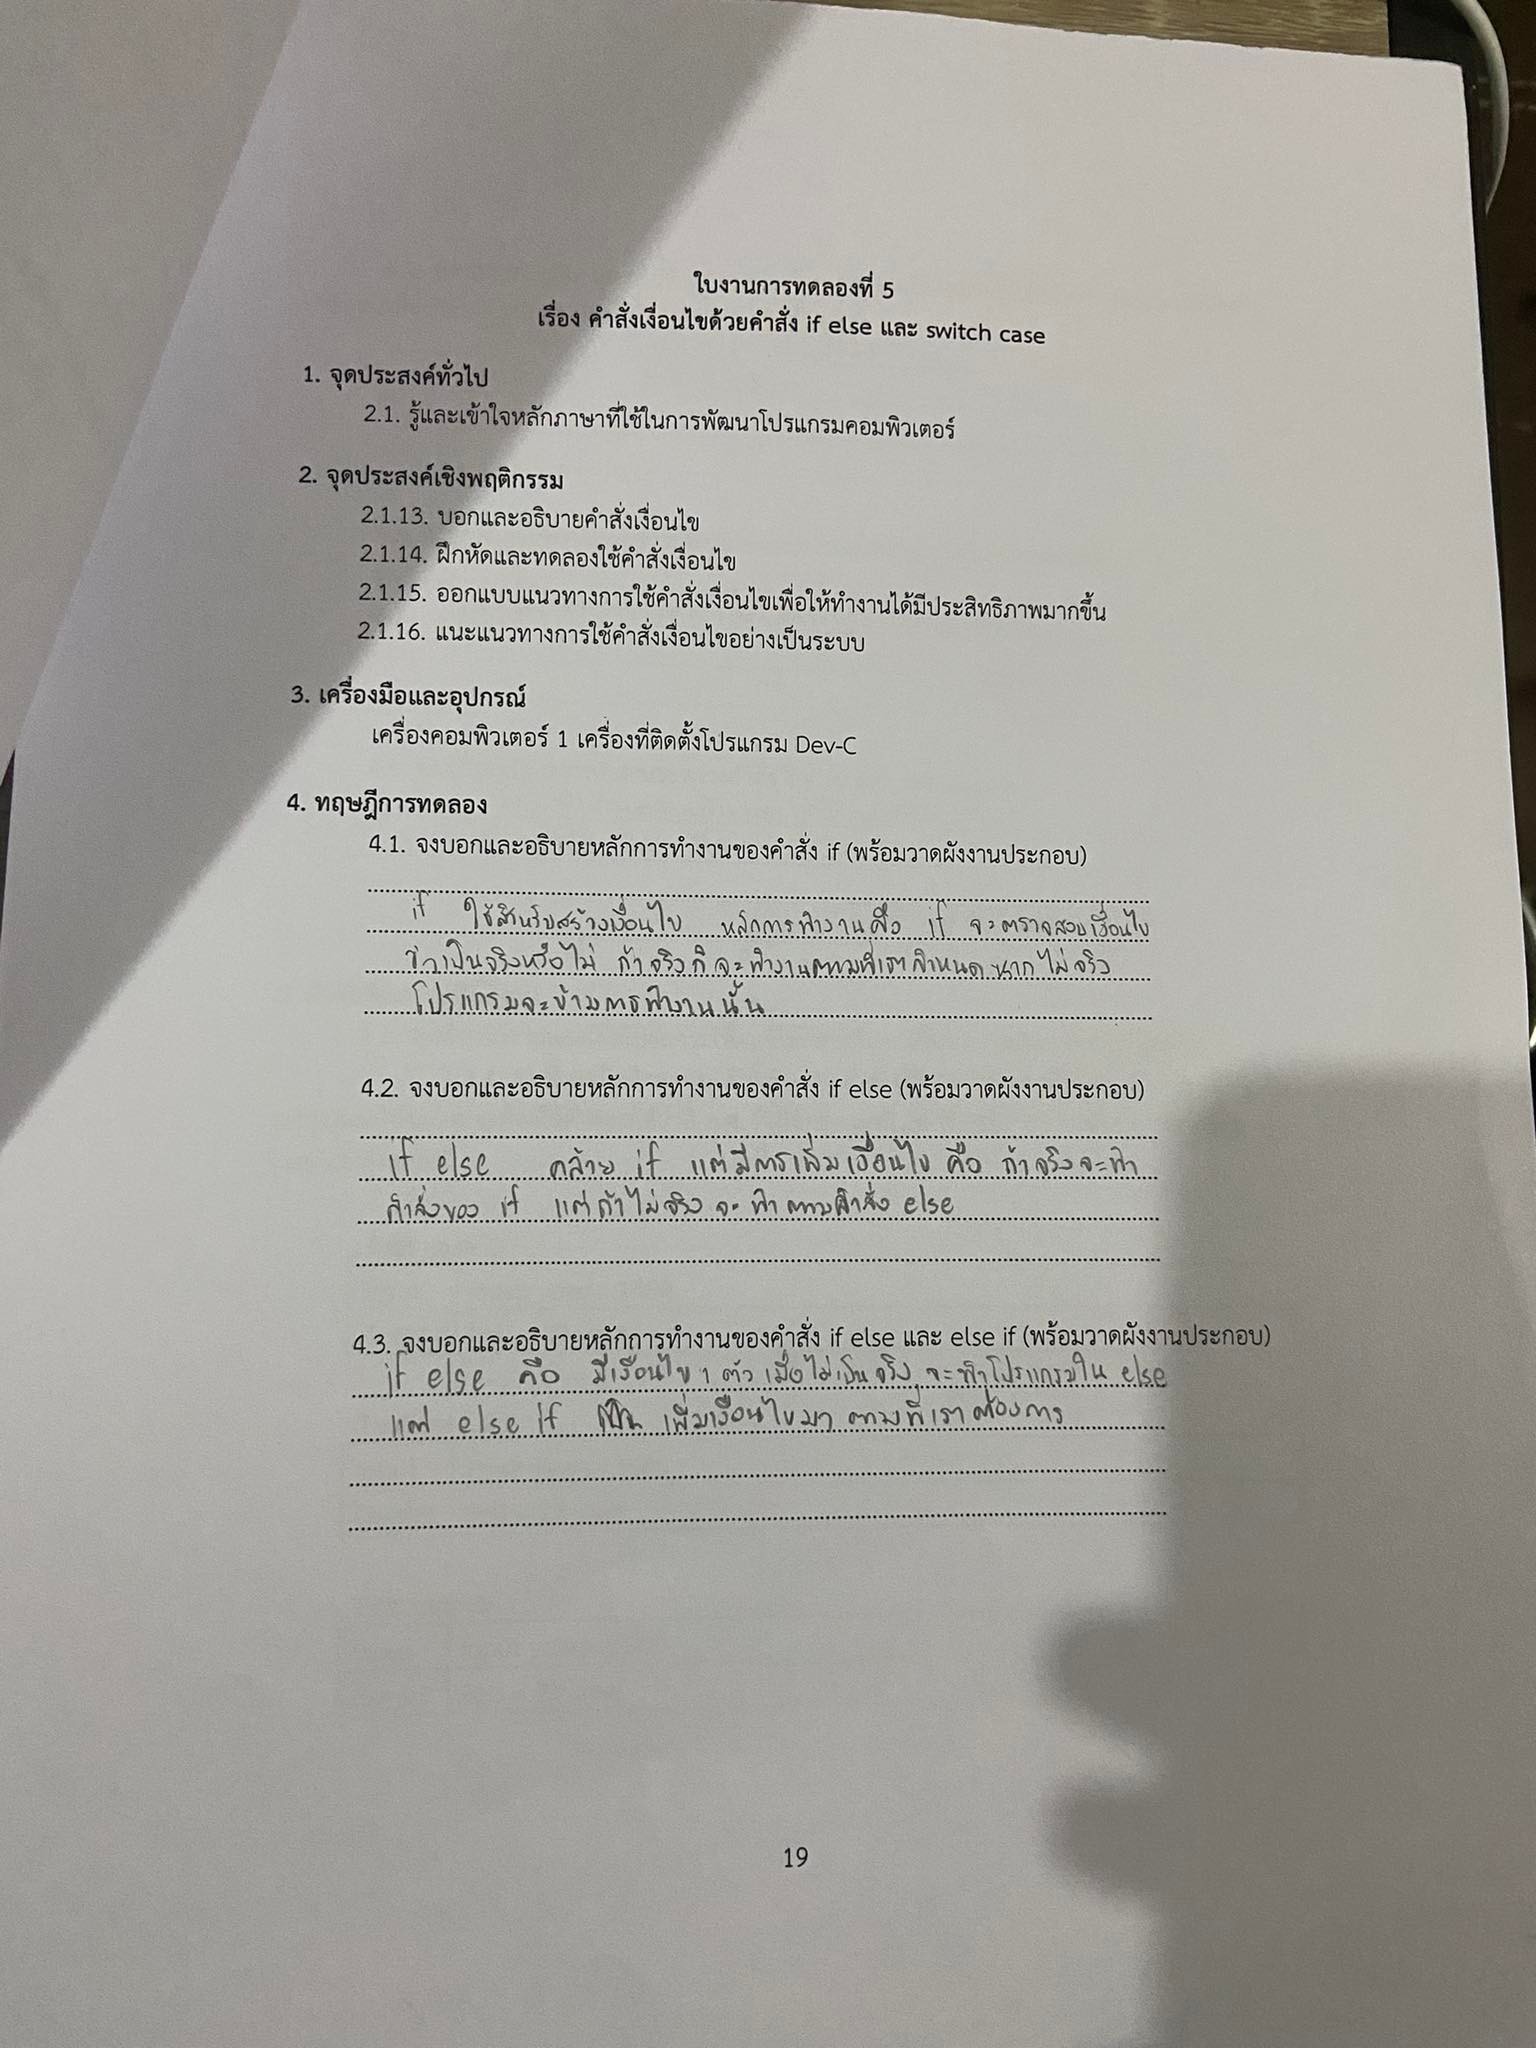 ใบงานการทดลองที่ 5
เรื่อง คำสั่งเงื่อนไขด้วยคำสั่ง if else และ switch case
1. จุดประสงค์ทั่วไป
2.1. รู้และเข้าใจหลักภาษาที่ใช้ในการพัฒนาโปรแกรมคอมพิวเตอร์
2. จุดประสงค์เชิงพฤติกรรม
2.1.13. บอกและอธิบายคำสั่งเงื่อนไข
2.1.14. ฝึกหัดและทดลองใช้คำสั่งเงื่อนไข
2.1.15. ออกแบบแนวทางการใช้คำสั่งเงื่อนไขเพื่อให้ทำงานได้มีประสิทธิภาพมากขึ้น
2.1.16. แนะแนวทางการใช้คำสั่งเงื่อนไขอย่างเป็นระบบ
3. เครื่องมือและอุปกรณ์
เครื่องคอมพิวเตอร์ 1 เครื่องที่ติดตั้งโปรแกรม Dev-C
4. ทฤษฎีการทดลอง
4.1. จงบอกและอธิบายหลักการทำงานของคำสั่ง if (พร้อมวาดผังงานประกอบ)
if ใช้สำหรับสร้างเงื่อนไข หลักการทำงานคือ if จะตรวจสอบเงื่อนไข
ว่าเป็นจริงหรือไม่ ถ้าจริงก็จะทำงานตามที่เรากำหนด หากไม่จริง
โปรแกรมจะข้ามการทำงานนั้น
4.2. จงบอกและอธิบายหลักการทำงานของคำสั่ง if else (พร้อมวาดผังงานประกอบ)
if else คล้าย if แต่มีการเพิ่มเงื่อนไข คือ ถ้าจริงจะทำ
คำสั่งของ if แต่ถ้าไม่จริง จะ ทำตามคำสั่ง else
4.3. จงบอกและอธิบายหลักการทำงานของคำสั่ง if else และ else if (พร้อมวาดผังงานประกอบ)
if else คือ มีเงื่อนไข 1 ตัว เมื่อไม่เป็นจริง จะทำโปรแกรมใน else
แต่ else if เพิ่มเงื่อนไขมา ตามที่เราต้องการ
19